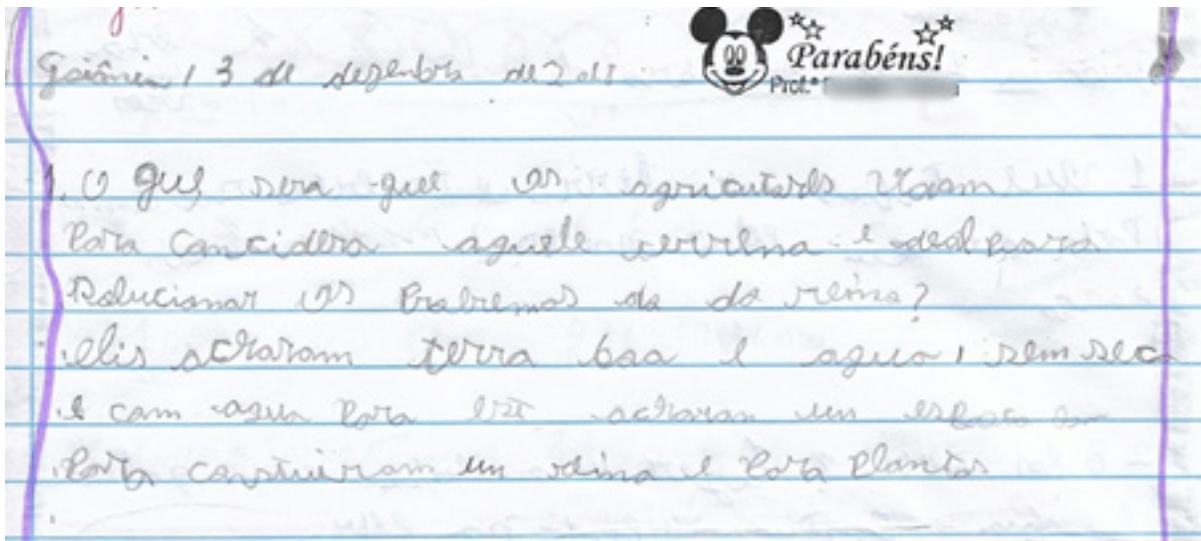 Parabéns!
Prof.ª
Goiânia, 3 de dezenbro de 2 de
1. O que, sera que os agricutores
Para concidera aquele terrena e ideal para
Solucionar os Probremas da do reino?
elis acharam terra boa e agua, sem seca
e com agua Para acharam um espaco
Para constuiram um reino e Para Plantar